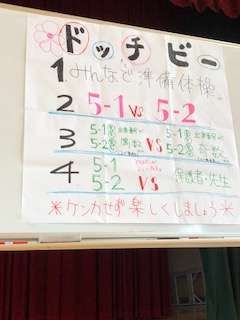 ドッチビー
1 みんなで準備体操。
2 5-1 VS 5-2
3 5-1 5-2 偶数 VS 5-1 5-2 奇数
4 5-1 5-2 VS 保護者・先生
※ケンカせず楽しくしましょう※